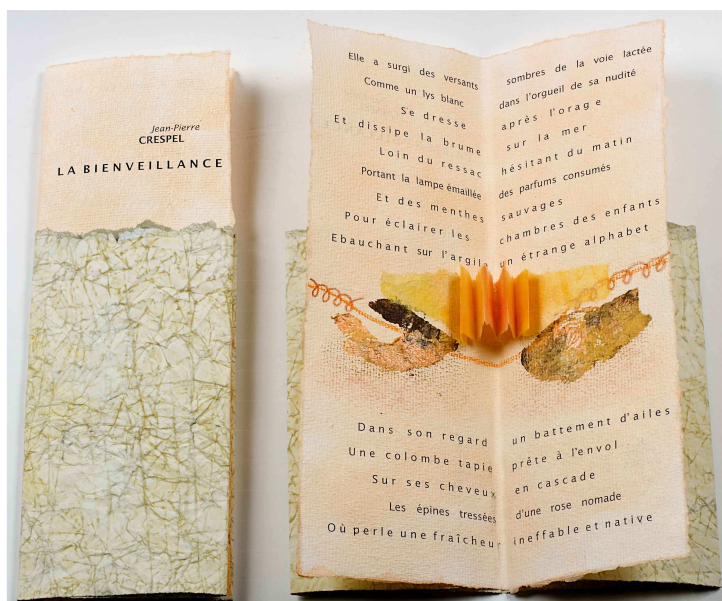 Jean-Pierre
CRESPEL
LA BIENVEILLANCE
Elle a surgi des versants sombres de la voie lactée
Comme un lys blanc dans l'orgueil de sa nudité
Se dresse après l'orage
Et dissipe la brume sur la mer
Loin du ressac hésitant du matin
Portant la lampe émaillée des parfums consumés
Et des menthes sauvages
Pour éclairer les chambres des enfants
Ebauchant sur l'argile un étrange alphabet
Dans son regard un battement d'ailes
Une colombe tapie prête à l'envol
Sur ses cheveux en cascade
Les épines tressées d'une rose nomade
Où perle une fraîcheur ineffable et native